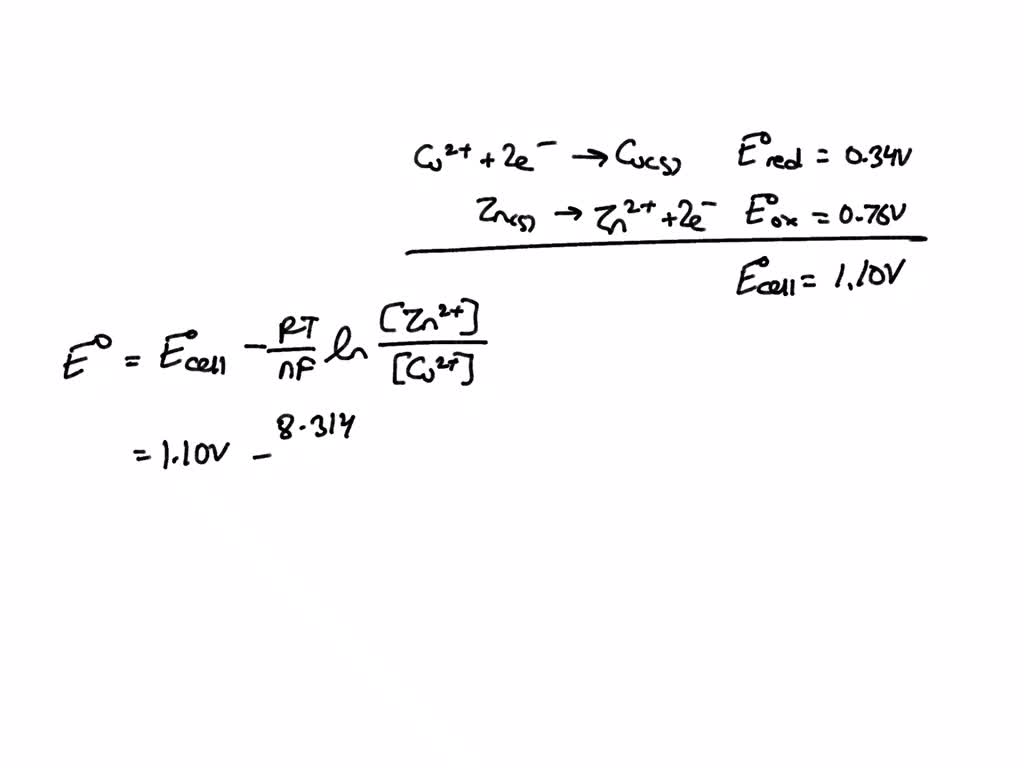 Cu²⁺ + 2e⁻ → Cu(s) E°red = 0.34V
Zn(s) → Zn²⁺ + 2e⁻ E°ox = 0.76V
E°cell = 1.10V
E° = E°cell - RT/nF ln [Zn²⁺]/[Cu²⁺]
= 1.10V - 8.314